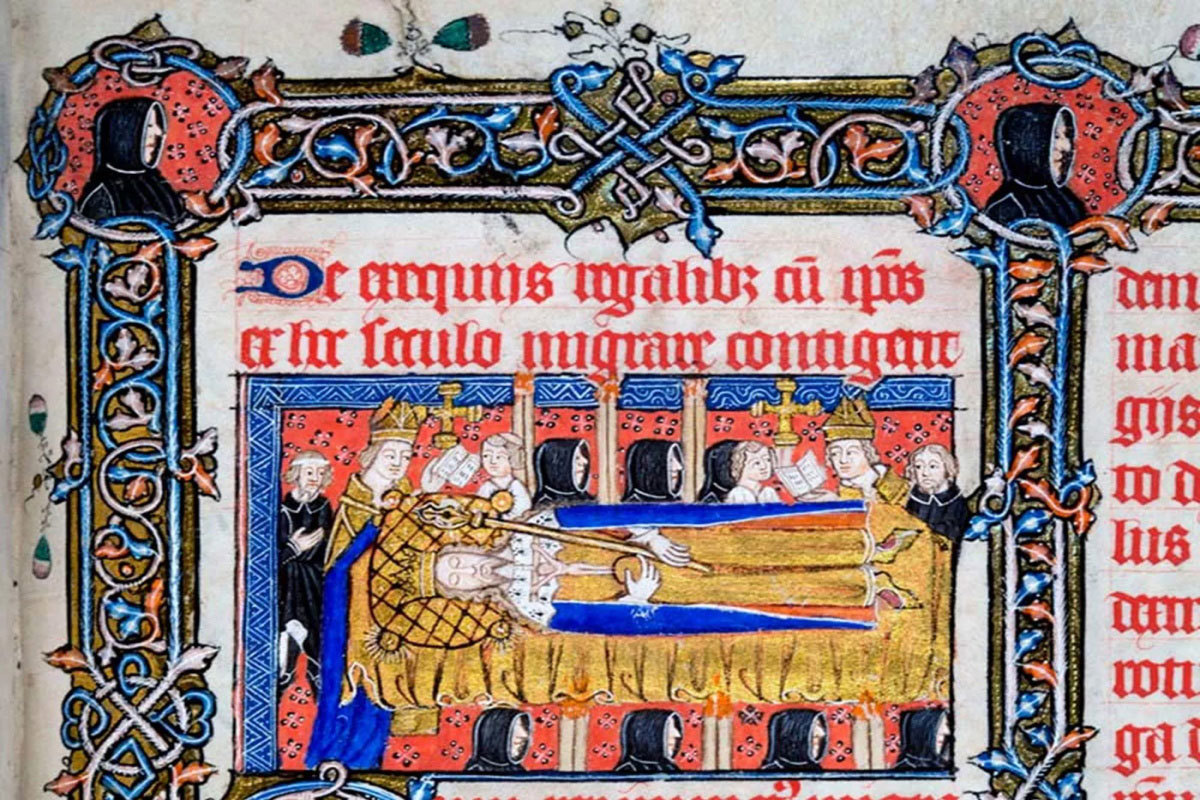 De exequijs regalibꝫ cū ip̄os
ex hͨ seculo migrare contigerit
dem
ma
gijs
to d
lius
ga d